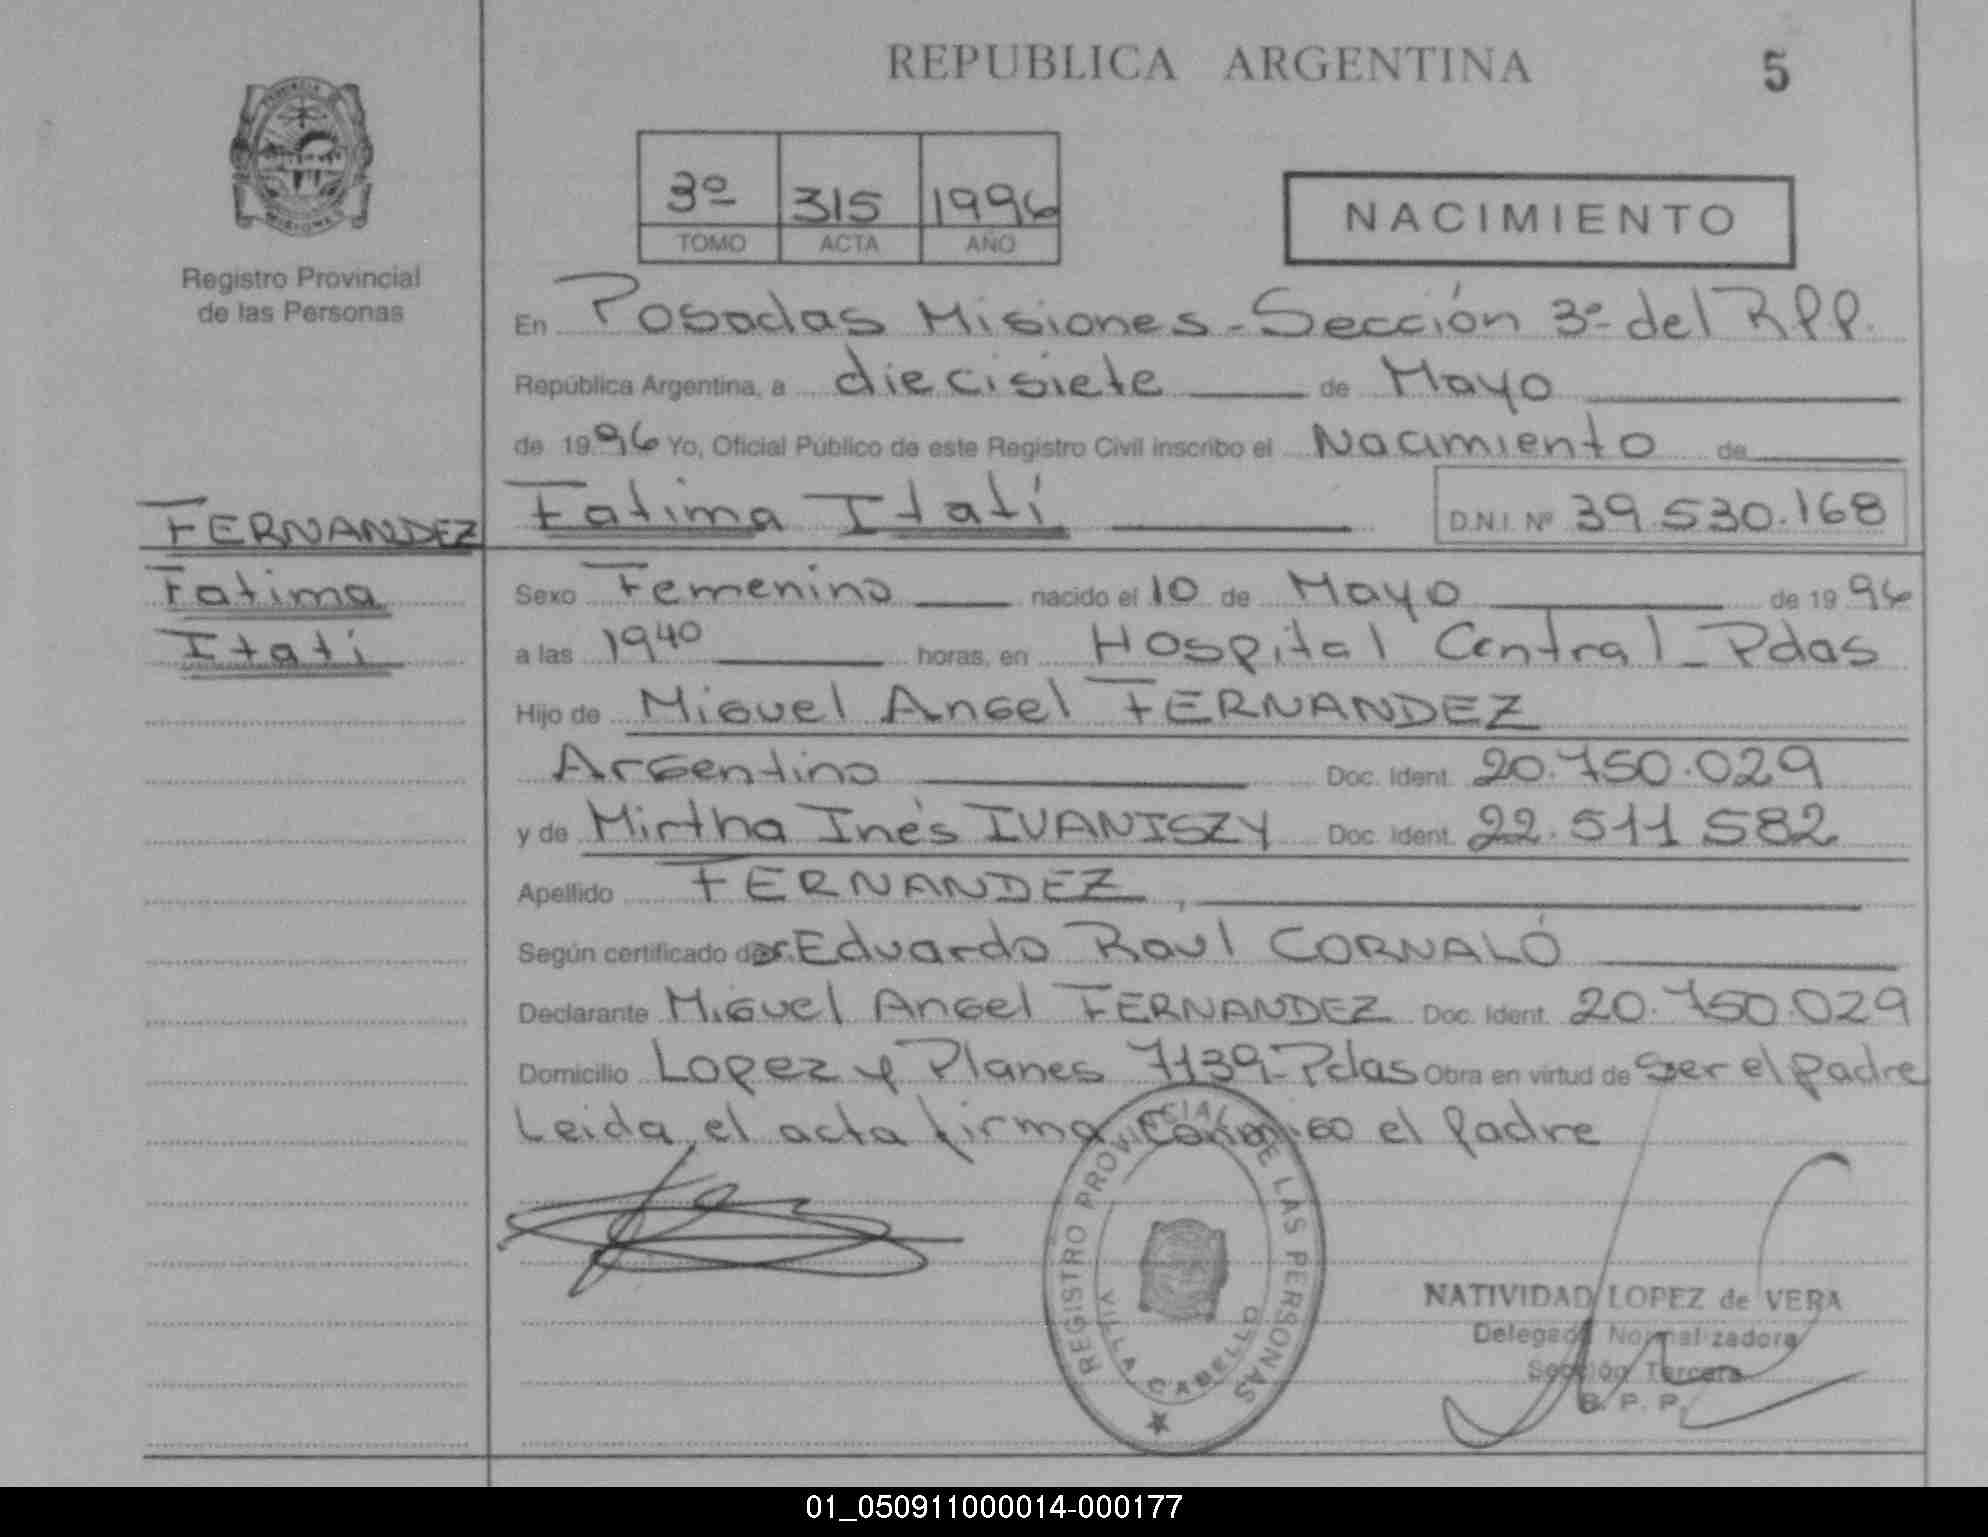 REPUBLICA ARGENTINA
5
3º 315 1996
TOMO ACTA AÑO
NACIMIENTO
Registro Provincial
de las Personas
En Posadas Misiones - Sección 3ª del RPP.
República Argentina, a diecisiete de Mayo
de 1996 Yo, Oficial Público de este Registro Civil inscribo el Nacimiento de
FERNANDEZ Fatima Itatí D.N.I. Nº 39.530.168
Fatima
Itatí
Sexo Femenino nacido el 10 de Mayo de 1996
a las 19 40 horas, en Hospital Central - Pdas
Hijo de Miguel Angel FERNANDEZ
Argentino Doc. Ident. 20.750.029
y de Mirtha Inés IVANISZY Doc. Ident. 22.511.582
Apellido FERNANDEZ,
Según certificado de Eduardo Raul CORNALÓ
Declarante Miguel Angel FERNANDEZ Doc. Ident. 20.750.029
Domicilio Lopez y Planes 7139 - Pdas Obra en virtud de ser el padre
Leida el acta firma conmigo el padre
REGISTRO PROVINCIAL DE LAS PERSONAS
VILLA CABELLO
NATIVIDAD LOPEZ de VERA
Delegada Normalizadora
Sección Tercera
R. P. P.
01_050911000014-000177